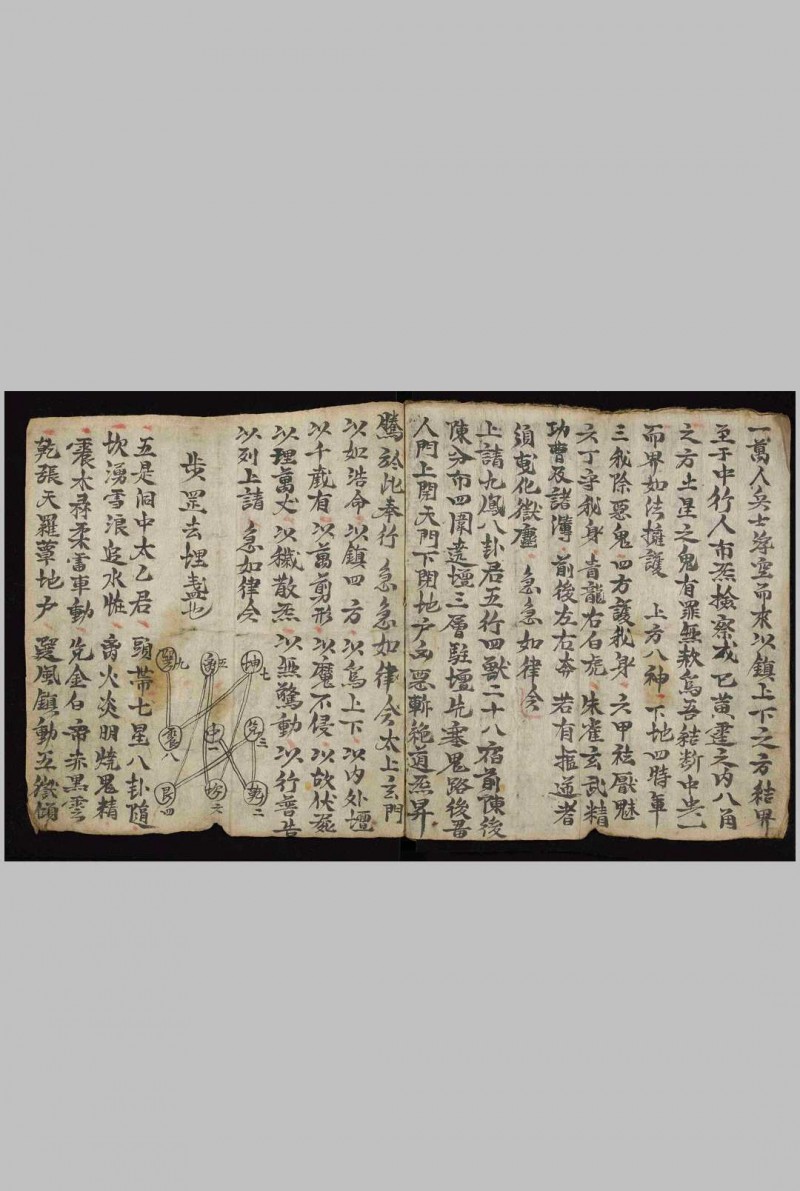 一萬人兵士降空而來以鎮上下之方結界
至于中行人市炁檢察戊己黃之内八角
之方土星之鬼有罪無赦為吾結断中央一
而界如法擁護 上方八神下地四時軍
三我除惡鬼四方護我身 六甲祛厭魅
六丁守我身 青龍右白虎 朱雀玄武精
功曹及諸 前後左右奔 若有拒道者
須化微塵 急急如律令
上請九鳳八卦君五行四獸二十八宿前陳後
陳分布四圍遶壇三層駐壇先塞鬼路後
人門上開天門下閉地户 惡斬絶道炁昇
騰於此奉行 急急如律令太上玄門
以如浩命 以鎮四方 以為上下 以内外壇
以千截有 以萬剪形 以魔不侵 以故伏
以理萬 以穢散炁 以無驚動 以行普
以列上請 急如律令
步罡去埋也
坤七
五
九
兌三
中一
八
二
坎六
艮四
五是洞中太乙君 頭帶七星八卦隨
坎湧雪浪水 火炎明燒鬼精
震木尋柔雷車動 兌金白赤黑雲
乾張天羅地户 巽風鎮動五